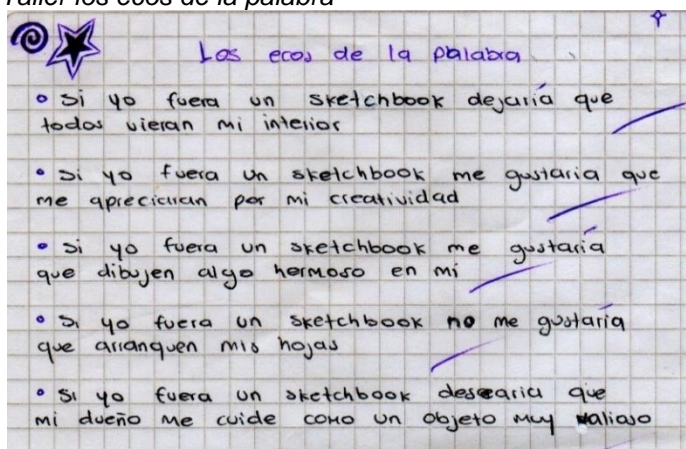 Taller los ecos de la palabra
Los ecos de la palabra
• Si yo fuera un sketchbook dejaría que
todos vieran mi interior
• Si yo fuera un sketchbook me gustaria que
me apreciaran por mi creatividad
• Si yo fuera un sketchbook me gustaría
que dibujen algo hermoso en mí
• Si yo fuera un sketchbook no me gustaría
que arranquen mis hojas
• Si yo fuera un sketchbook desearia que
mi dueño me cuide como un objeto muy valioso